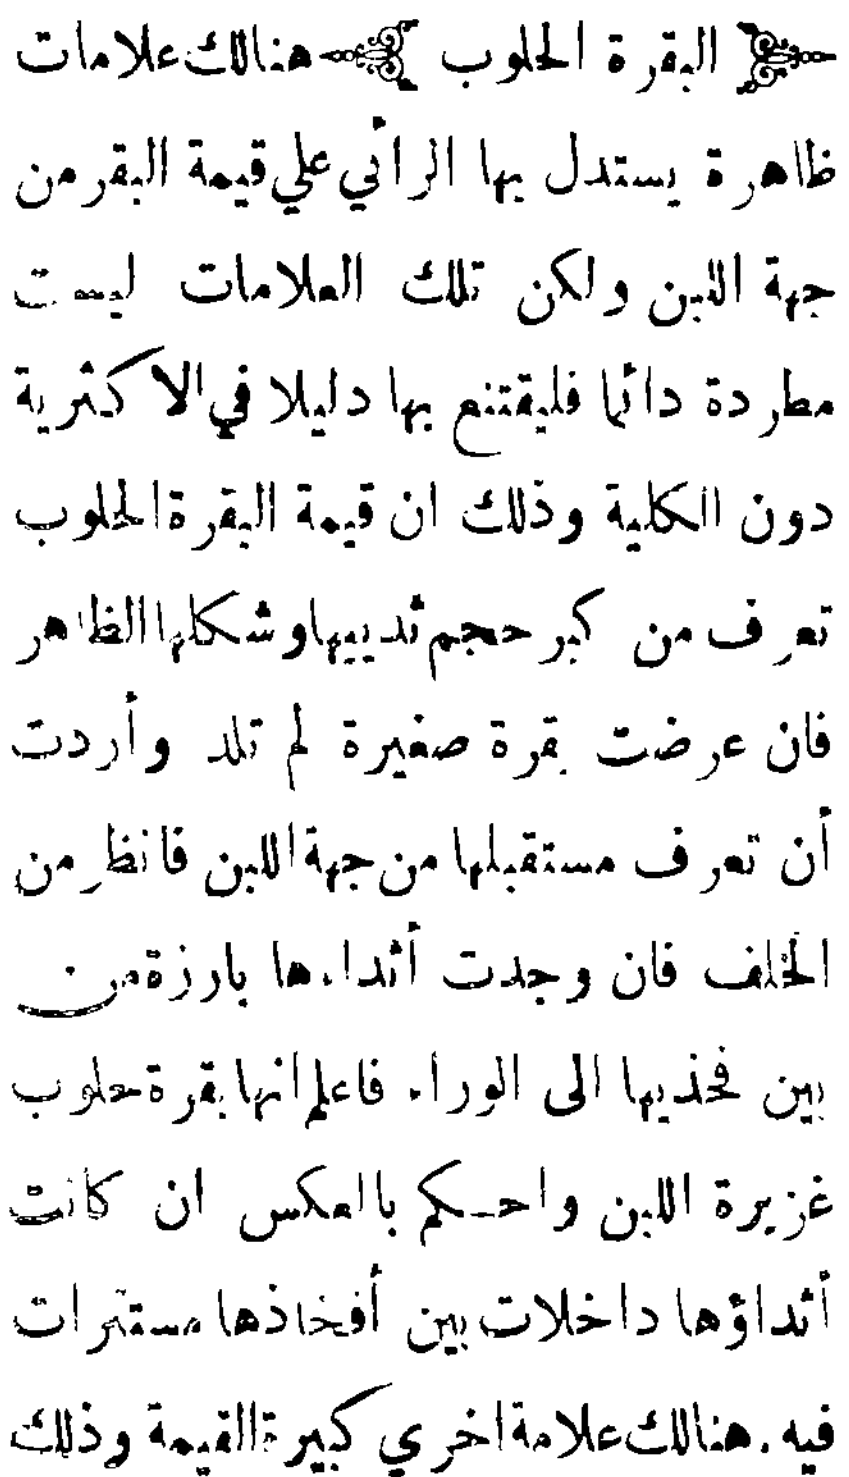 البقرة الحلوب هنالك علامات
ظاهرة يستدل بها الرائي علي قيمة البقر من
جهة اللبن ولكن تلك العلامات ليست
مطردة دائما فليقتنع بها دليلا في الاكثرية
دون الكلية وذلك ان قيمة البقرة الحلوب
تعرف من كبر حجم ثدييها وشكلها الظاهر
فان عرضت بقرة صغيرة لم تلد وأردت
أن تعرف مستقبلها من جهة اللبن فانظر من
الخلف فان وجدت أثداءها بارزة من
بين فخذيها الى الوراء فاعلم انها بقرة حلوب
غزيرة اللبن واحكم بالعكس ان كانت
أثداؤها داخلات بين أفخاذها مستترات
فيه. هنالك علامة اخري كبيرة القيمة وذلك